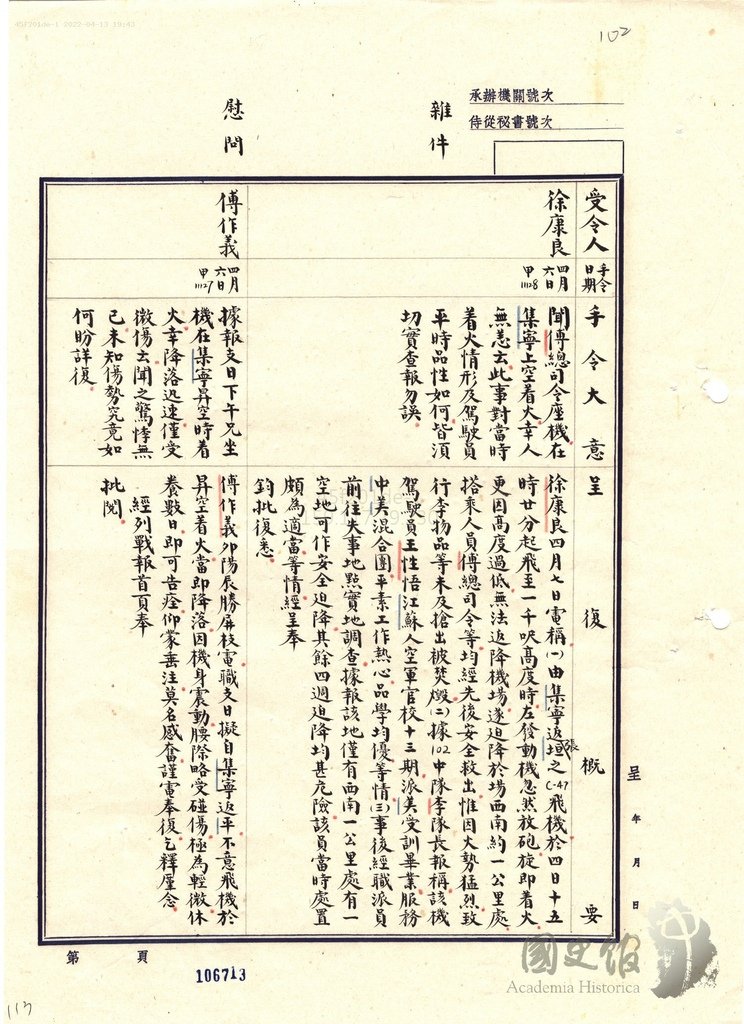 45F201de-1 2022-04-13 19:43
102
承辦機關號次
侍從秘書號次
雜件
慰問
受令人
手令日期
手令大意
呈復概要
徐康良
四月六日
甲11128
聞傅總司令座機在
集寧上空着火幸人
無恙云此事對當時
着火情形及駕駛員
平時品性如何皆須
切實查報勿誤
徐康良四月七日電稱(一)由集寧返張垣之C-47飛機於四日十五
時廿分起飛至一千呎高度時左發動機忽然放砲旋即着火
更因高度過低無法返降機場遂迫降於場西南約一公里處
搭乘人員傅總司令等均經先後安全救出惟因火勢猛烈致
行李物品等未及搶出被焚燬(二)據102中隊李隊長報稱該機
駕駛員王性悟江蘇人空軍官校十三期派美受訓畢業服務
中美混合團平素工作熱心品學均優等情(三)事後經職派員
前往失事地點實地調查據報該地僅有西南一公里處有一
空地可作安全迫降其餘四週迫降均甚危險該員當時處置
頗為適當等情經呈奉
鈞批復悉
傅作義
四月六日
甲11127
據報支日下午兄坐
機在集寧昇空時着
火幸降落迅速僅受
微傷云聞之驚悸無
已未知傷勢究竟如
何盼詳復
傅作義卯陽辰勝屏枝電職支日擬自集寧返平不意飛機於
昇空着火當即降落因機身震動腰際略受碰傷極為輕微休
養數日即可告痊仰蒙垂注莫名感奮謹電奉復乞釋厪念
經列戰報首頁奉
批閱
呈 年 月 日
第 頁
106713
113
國史館
Academia Historica